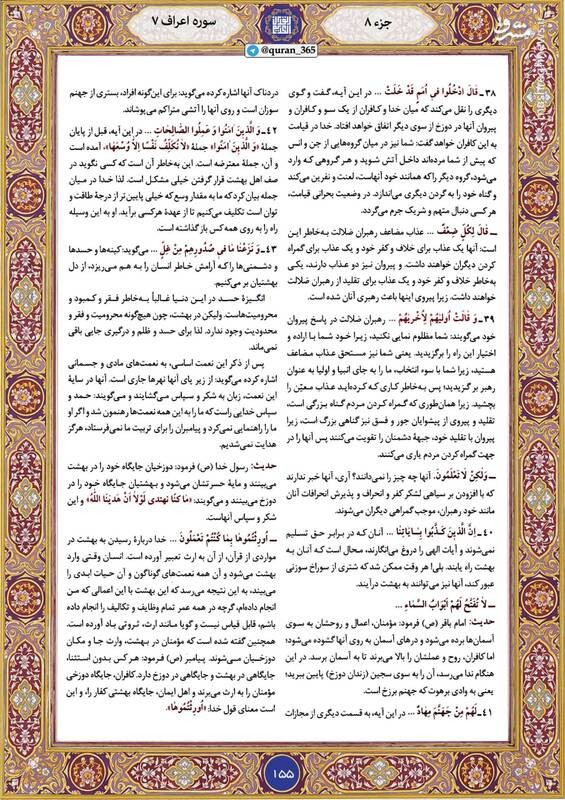 جزء ۸
سوره اعراف ۷
@quran_365
۳۸ـ قَالَ ادْخُلُوا فِي أُمَمٍ قَدْ خَلَتْ ... در این آیه، گفت و گوی
دیگری را نقل می‌کند که میان خدا و کافران از یک سو و کافران و
پیروان آنها در دوزخ از سوی دیگر اتفاق خواهد افتاد. خدا در قیامت
به این کافران خواهد گفت: شما نیز در میان گروه‌هایی از جن و انس
که پیش از شما مرده‌اند داخل آتش شوید و هر گروهی که وارد
می‌شود، گروه دیگر را که همانند خود آنهاست، لعنت و نفرین می‌کند
و گناه خود را به گردن دیگری می‌اندازد. در وضعیت بحرانی قیامت،
هر کسی دنبال متهم و شریک جرم می‌گردد.
ـ قَالَ لِكُلٍّ ضِعْفٌ ... عذاب مضاعف رهبران ضلالت به‌خاطر این
است: آنها یک عذاب برای خلاف و کفر خود و یک عذاب برای گمراه
کردن دیگران خواهند داشت. و پیروان نیز دو عذاب دارند، یکی
به‌خاطر خلاف و کفر خود و یک عذاب برای تقلید از رهبران ضلالت
خواهند داشت. زیرا پیروی اینها باعث رهبری آنان شده است.
۳۹ـ وَ قَالَتْ أُولَيهُمْ لِأُخْرَيهُمْ ... رهبران ضلالت در پاسخ پیروان
خود می‌گویند: شما مظلوم نمایی نکنید، زیرا خود شما با اراده و
اختیار این راه را برگزیدید. یعنی شما نیز مستحق عذاب مضاعف
هستید، زیرا شما با سوء انتخاب، ما را به جای انبیا و اولیا به عنوان
رهبر برگزیدید؛ پس به‌خاطر کاری که کرده‌اید عذاب معیّن را
بچشید. زیرا همان‌طوری که گمراه کردن مردم گناه بزرگی است،
تقلید و پیروی از پیشوایان جور و فسق نیز گناهی بزرگ است، زیرا
پیروان با تقلید خود، جبههٔ دشمنان را تقویت می‌کنند پس آنها را در
جهت گمراه کردن مردم یاری می‌کنند.
ـ وَلَكِنْ لَا تَعْلَمُونَ. آنها چه چیز را نمی‌دانند؟ آری، آنها خبر ندارند
که با افزودن بر سیاهی لشکر کفر و انحراف و پذیرش انحرافات آنان
مانند خود رهبران، موجب گمراهی دیگران می‌شوند.
۴۰ـ إِنَّ الَّذِينَ كَذَّبُوا بِـَايَاتِنَا ... آنان که در برابر حق تسلیم
نمی‌شوند و آیات الهی را دروغ می‌انگارند، محال است که آنان به
بهشت راه یابند. بلی! هر وقت ممکن شد که شتری از سوراخ سوزنی
عبور کند، آنها نیز می‌توانند به بهشت درآیند.
ـ لَا تُفَتَّحُ لَهُمْ أَبْوَابُ السَّمَاءِ ...
حدیث: امام باقر (ع) فرمود: مؤمنان، اعمال و روحشان به سوی
آسمان‌ها برده می‌شود و درهای آسمان به روی آنها گشوده می‌شود؛
اما کافران، روح و عملشان را بالا می‌برند تا به آسمان برسد. در این
هنگام ندا می‌رسد، آن را به سوی سجین (زندان دوزخ) پایین ببرید؛
یعنی به وادی برهوت که جهنم برزخ است.
۴۱ـ لَهُمْ مِنْ جَهَنَّمَ مِهَادٌ ... در این آیه، به قسمت دیگری از مجازات
دردناک آنها اشاره کرده می‌گوید: برای این‌گونه افراد، بستری از جهنم
سوزان است و روی آنها را آتشی متراکم می‌پوشاند.
۴۲ـ وَ الَّذِينَ ءَامَنُوا وَ عَمِلُوا الصَّالِحَاتِ ... در این آیه، قبل از پایان
جملهٔ «وَ الَّذِينَ ءَامَنُوا» جملهٔ «لَا تُكَلِّفُ نَفْسًا إِلَّا وُسْعَهَا»، آمده است
و آن، جملهٔ معترضه است. این به‌خاطر آن است که کسی نگوید در
صف اهل بهشت قرار گرفتن خیلی مشکل است. لذا خدا در میان
جمله بیان کرد که ما به مقدار وسع که خیلی پایین‌تر از درجهٔ طاقت و
توان است تکلیف می‌کنیم تا از عهدهٔ هرکسی برآید. او به این وسیله
راه را به روی همه کس باز گذاشته است.
۴۳ـ وَ نَزَعْنَا مَا فِي صُدُورِهِمْ مِنْ غِلٍّ ... می‌گوید: کینه‌ها و حسدها
و دشمنی‌ها را که آرامش خاطر انسان را به هم می‌ریزد، از دل
بهشتیان بر می‌کنیم.
انگیزهٔ حسد در این دنیا غالباً به‌خاطر فقر و کمبود و
محرومیت‌هاست. ولیکن در بهشت، چون هیچ‌گونه محرومیت و فقر و
محدودیت وجود ندارد. لذا برای حسد و ظلم و درگیری جایی باقی
نمی‌ماند.
پس از ذکر این نعمت اساسی، به نعمت‌های مادی و جسمانی
اشاره کرده می‌گوید: از زیر پای آنها نهرها جاری است. آنها در سایهٔ
این نعمت، زبان به شکر و سپاس می‌گشایند و می‌گویند: حمد و
سپاس خدایی راست که ما را به این همه نعمت‌ها رهنمون شد و اگر او
ما را راهنمایی نمی‌کرد و پیامبران را برای تربیت ما نمی‌فرستاد، هرگز
هدایت نمی‌شدیم.
حدیث: رسول خدا (ص) فرمود: دوزخیان جایگاه خود را در بهشت
می‌بینند و مایهٔ حسرتشان می‌شود و بهشتیان جایگاه خود را در
دوزخ می‌بینند و می‌گویند: «مَا كُنَّا نهتدى لَوْلَا أَنْ هَدينَا اللَّهُ» و این
شکر و سپاس آنهاست.
ـ أُورِثْتُمُوهَا بِمَا كُنْتُمْ تَعْمَلُونَ ... خدا دربارهٔ رسیدن به بهشت در
مواردی از قرآن، از آن به ارث تعبیر آورده است. انسان وقتی وارد
بهشت می‌شود و آن همه نعمت‌های گوناگون و آن حیات ابدی را
می‌بیند، به این نتیجه می‌رسد که این بهشت با این اعمالی که من
انجام داده‌ام، گرچه در همه عمر تمام وظایف و تکالیف را انجام داده
باشم، قابل قیاس نیست و گویا مانند ارث، ثروتی باد آورده است.
همچنین گفته شده است که مؤمنان در بهشت، وارث جا و مکان
دوزخیان می‌شوند. پیامبر (ص) فرمود: هر کس بدون استثنا،
جایگاهی در بهشت و جایگاهی در دوزخ دارد. کافران، جایگاه دوزخی
مؤمنان را به ارث می‌برند و اهل ایمان، جایگاه بهشتی کفار را، و این
است معنای قول خدا: «أُورِثْتُمُوهَا».
۱۵۵